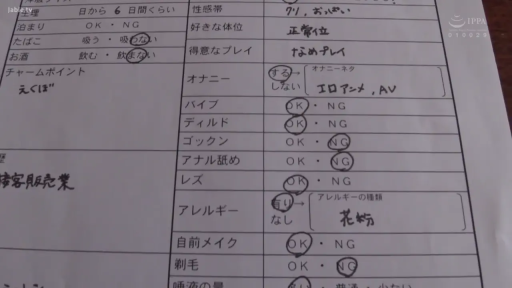 jable.tv
IPPA
010024
生理 日から 6 日間くらい
泊まり OK・NG
たばこ 吸う・吸わない
お酒 飲む・飲まない
チャームポイント
えくぼ
接客販売業
性感帯 クリ、おっぱい
好きな体位 正常位
得意なプレイ なめプレイ
オナニー する→ しない オナニーネタ
エロアニメ、AV
バイブ OK・NG
ディルド OK・NG
ゴックン OK・NG
アナル舐め OK・NG
レズ OK・NG
アレルギー 有り→ なし アレルギーの種類
花粉
自前メイク OK・NG
剃毛 OK・NG
唾液の量